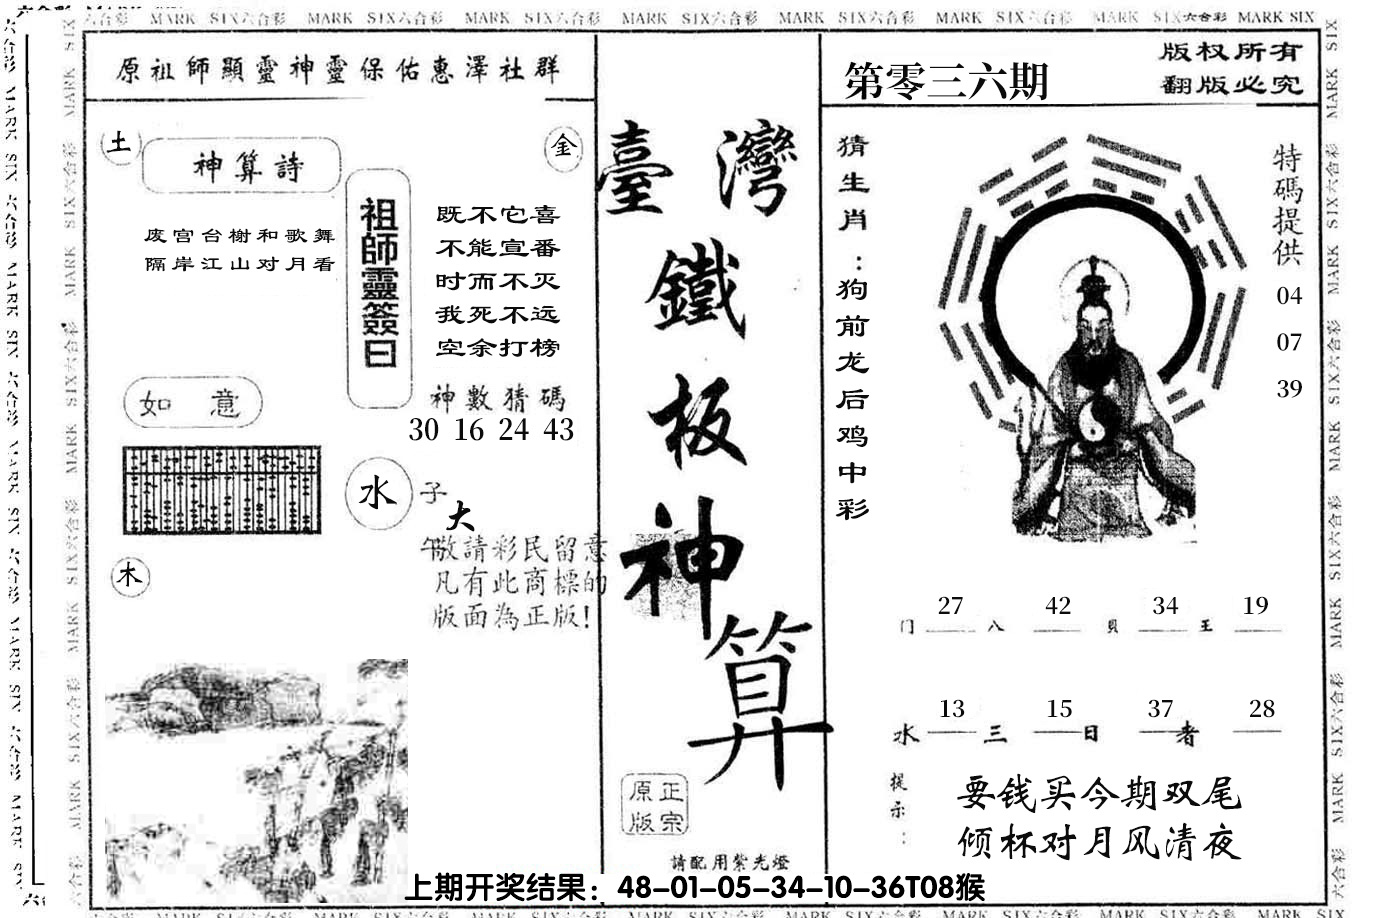 MARK SIX六合彩 MARK SIX六合彩 MARK SIX六合彩 MARK SIX六合彩 MARK SIX六合彩 MARK SIX六合彩 MARK SIX六合彩 MARK SIX
原祖師顯靈神靈保佑惠澤社群
土
神算詩
金
废宫台榭和歌舞
隔岸江山对月看
祖師靈簽曰
既不它喜
不能宣番
时而不灭
我死不远
空余打榜
如意
神數猜碼
30 16 24 43
水
子
大
午
敬請彩民留意
凡有此商標的
版面為正版!
木
臺灣
鐵
板
神
算
正宗
原版
請配用紫光燈
第零三六期
版权所有
翻版必究
猜生肖:狗前龙后鸡中彩
特碼提供
04
07
39
27 42 34 19
门 八 貝 王
13 15 37 28
水 三 日 者
提示:
要钱买今期双尾
倾杯对月风清夜
上期开奖结果：48-01-05-34-10-36T08猴